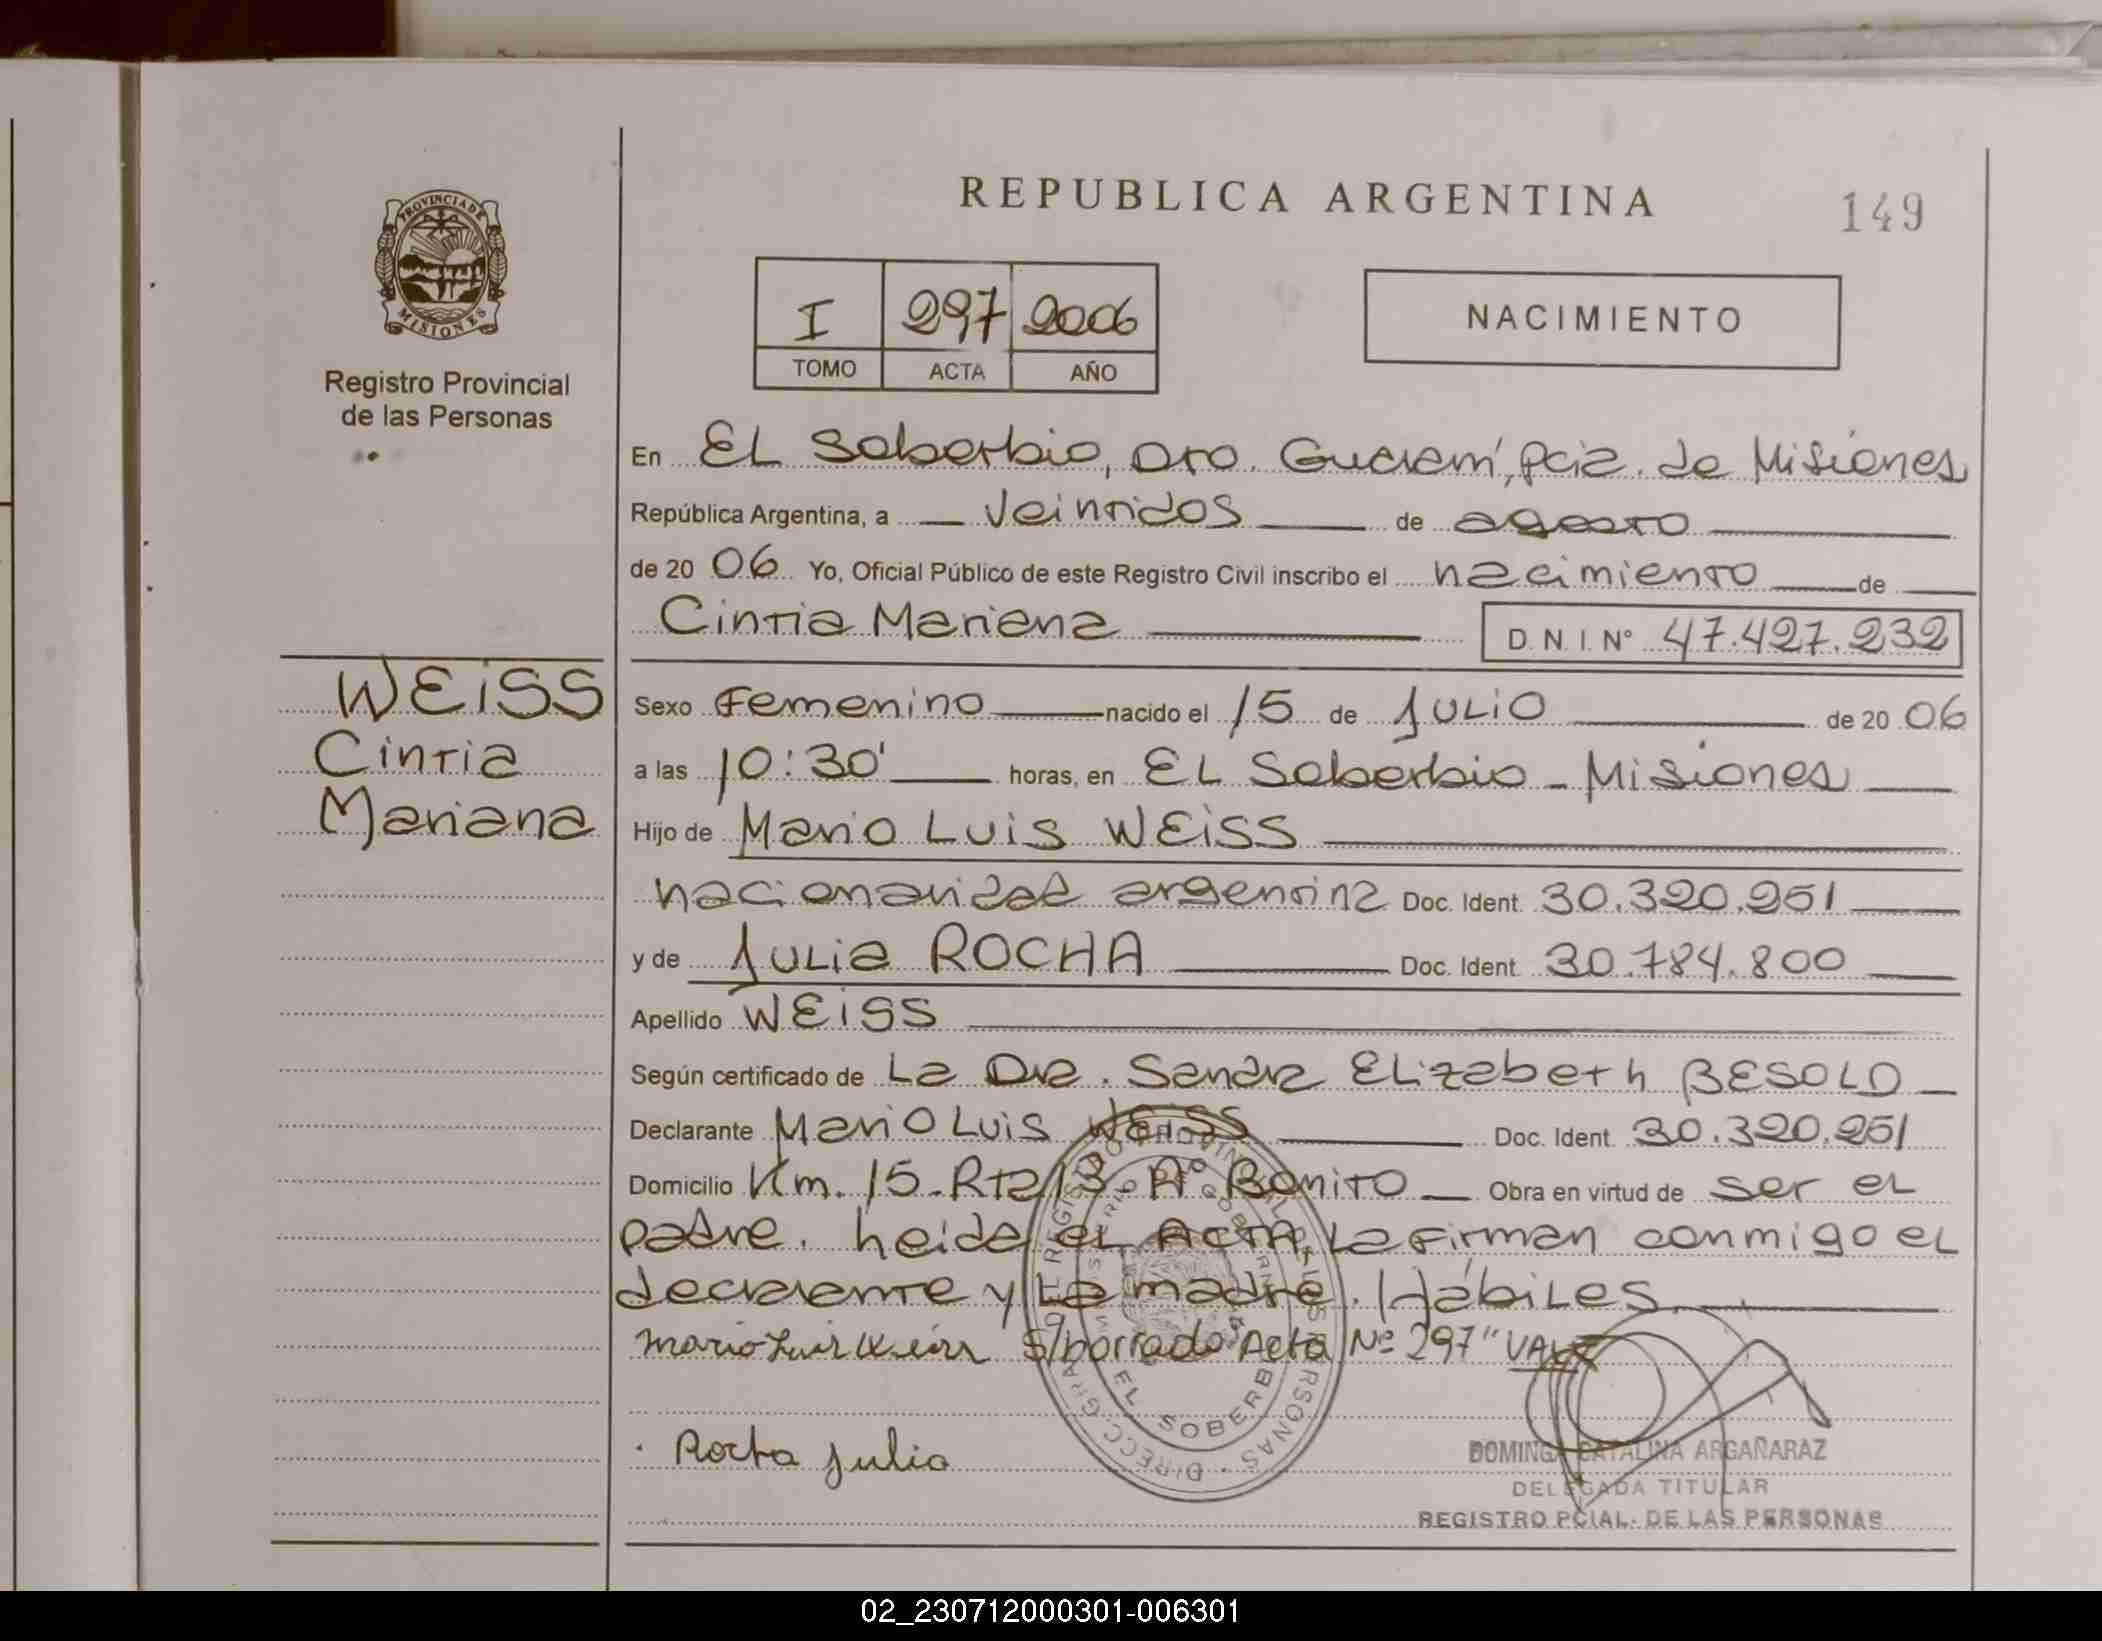 REPUBLICA ARGENTINA
149
PROVINCIA DE
MISIONES
Registro Provincial
de las Personas
I 297 2006
TOMO ACTA AÑO
NACIMIENTO
En EL Soberbio, Dto. Guaraní, pcia. de Misiones
República Argentina, a veintidos de agosto
de 20 06 Yo, Oficial Público de este Registro Civil inscribo el nacimiento de
Cintia Mariana D. N. I. N° 47.427.232
WEiSS
Cintia
Mariana
Sexo Femenino nacido el 15 de JULiO de 20 06
a las 10:30' horas, en EL Soberbio - Misiones
Hijo de Mario Luis WEiSS
nacionalidad argentina Doc. Ident. 30.320.251
y de JULia ROCHA Doc. Ident. 30.784.800
Apellido WEiSS
Según certificado de La Dra. Sandra ELizabeth BESOLD
Declarante Mario Luis WEiSS Doc. Ident. 30.320.251
Domicilio Km. 15 - Rta 13 A° Bonito Obra en virtud de ser el
padre. heida el ACTA, La firman conmigo el
declarante y La madre. Hábiles.
Mario Luis Weiss S/borrado "Acta N° 297" VALE
Rocha Julia
EL SOBERB
DOMINGA CATALINA ARGAÑARAZ
DELEGADA TITULAR
REGISTRO PCIAL. DE LAS PERSONAS
02_230712000301-006301